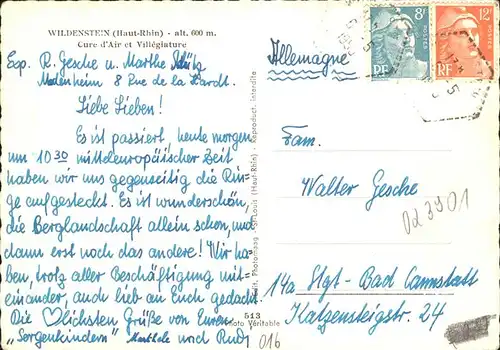 WILDENSTEIN (Haut-Rhin) - alt. 600 m.
Cure d'Air et Villégiature
Exp. R. Gesche u. Marthe Schütz
Modenheim 8 Rue de la Hardt.
Liebe Lieben!
Es ist passiert, heute morgen
um 10 30 mitteleuropäischer Zeit
haben wir uns gegenseitig die Rin-
ge aufgesteckt. Es ist wunderschön,
die Berglandschaft allein schon, und
dann erst noch das andere! Wir ha-
ben, trotz aller Beschäftigung mit-
einander, auch lieb an Euch gedacht
Die ♡lichsten Grüße von Euren
„Sorgenkindern" Marthele und Rudi
St-Louis (Haut-Rhin) - Reproduct. interdite
513
Photo Véritable
016
Allemagne
8F
POSTES
RF
12F
POSTES
RF
Fam.
Walter Gesche
023901
14a Stgt - Bad Cannstatt
Katzensteigstr. 24